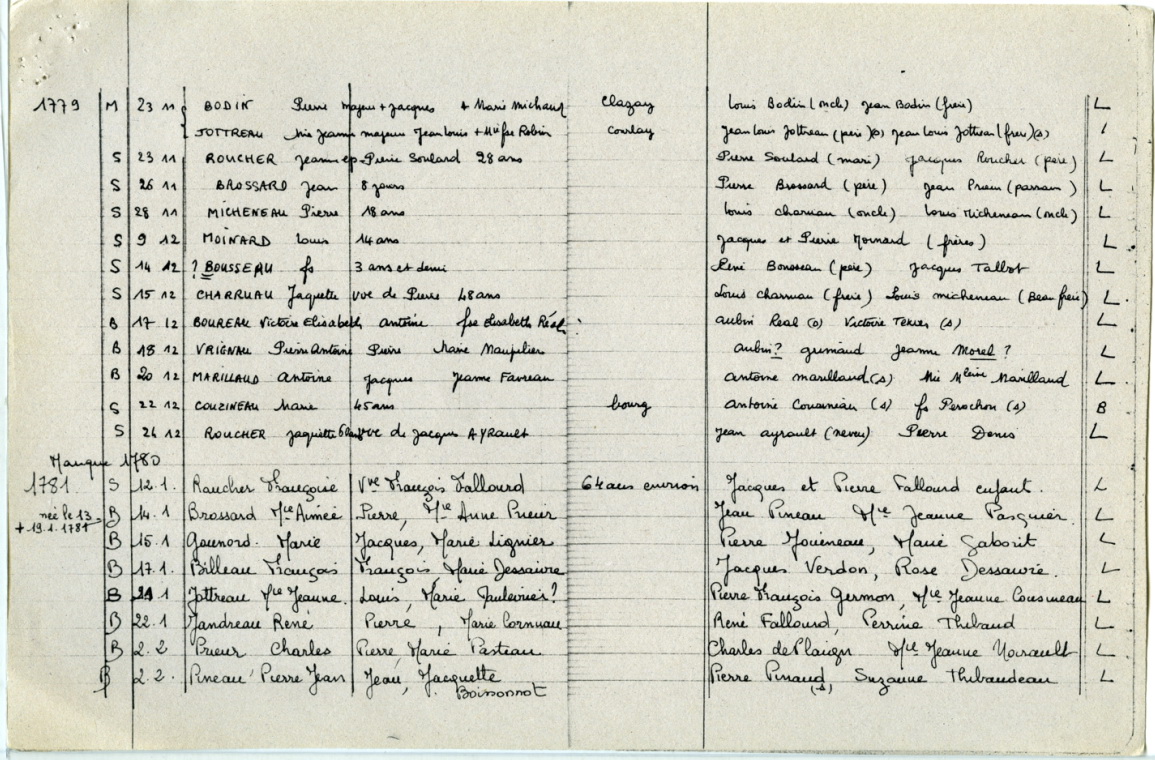 1779 M 23 11 BODIN Pierre majeur + Jacques + Marie Michaud Clazay Louis Bodin (oncle) Jean Bodin (frère) L
JOTTREAU Mie Jeanne majeure Jean Louis + Mie fse Robin Courlay Jean Louis Jottreau (père) (s) Jean Louis Jottreau (frère) (s)
S 23 11 ROUCHER Jeanne ep Pierre Soulard 28 ans Pierre Soulard (mari) Jacques Roucher (père) L
S 26 11 BROSSARD Jean 8 jours Pierre Brossard (père) Jean (parrain) L
S 28 11 MICHENEAU Pierre 18 ans Louis charuau (oncle) Louis Micheneau (oncle) L
S 9 12 MOINARD Louis 14 ans Jacques et Pierre Moinard (frères) L
S 14 12 ? BOUSSEAU fs 3 ans et demi René Bousseau (père) Jacques Talbot L
S 15 12 CHARRUAU Jaquette vve de Pierre 48 ans Louis charruau (frère) Louis micheneau (Beau frère) L
B 17 12 BOUREAU Victoire Elisabeth antoine fse Elisabeth Réal aubin Real (s) Victoire Texier (s) L
B 18 12 VRIGNAU Pierre Antoine Pierre Marie Maupilier aubin? grimaud Jeanne Morel ? L
B 20 12 MARILLAUD Antoine Jacques Jeanne Favreau antoine marillaud (s) Mie Mleine Marillaud L
S 22 12 COUZINEAU Marie 45 ans bourg antoine Cousineau (s) fs Perochon (s) B
S 26 12 ROUCHER jaquette vve de Jacques AYRAULT Jean ayrault (neveu) Pierre Denis L
Manque 1780
1781 S 12.1. Raucher Françoise Vve François Fallourd 64 ans environ Jacques et Pierre Fallourd enfant. L
née le 13 + 19.1.1781 B 14.1 Brossard Mie Aimée Pierre, Mie Anne Prieur Jean Pineau Mie Jeanne Pasquier. L
B 15.1 Gounord. Marie Jacques, Marie Lignier Pierre Jouineau, Marie Gaborit L
B 17.1. Billeau François François Marie Dessaivre Jacques Verdon, Rose Dessaivre. L
B 21.1 Jottreau Mie Jeanne. Louis, Marie Paulevrier? Pierre François Germon, Mie Jeanne Cousineau L
B 22.1 Jandreau René Pierre, Marie Cornuau René Fallourd, Perrine Thibaud L
B 2.2 Prieur Charles Pierre, Marie Pasteau Charles de Plaign Mie Jeanne Noirault L
B 2.2. Pineau Pierre Jean Jean, Jacquette Pierre Pinaud (s) Suzanne Thibaudeau L
Boissonnot